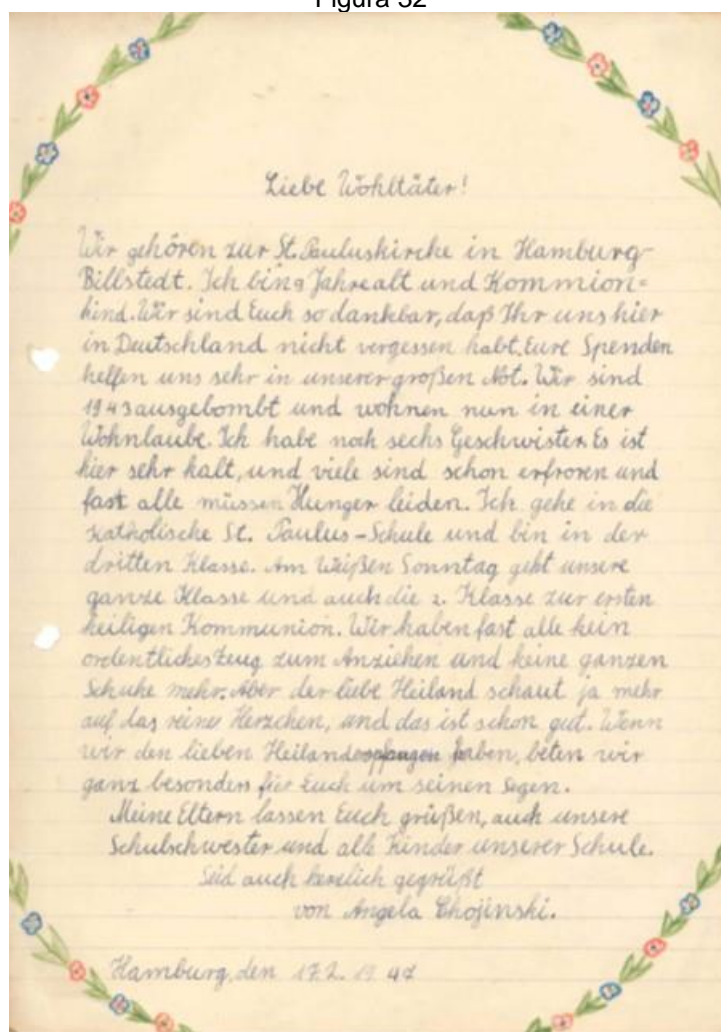 Figura 32
Liebe Wohltäter!
Wir gehören zur St. Pauluskirche in Hamburg-
Billstedt. Ich bin 9 Jahre alt und Kommion=
kind. Wir sind Euch so dankbar, daß Ihr uns hier
in Deutschland nicht vergessen habt. Eure Spenden
helfen uns sehr in unserer großen Not. Wir sind
1943 ausgebombt und wohnen nun in einer
Wohnlaube. Ich habe noch sechs Geschwister. Es ist
hier sehr kalt, und viele sind schon erfroren und
fast alle müssen Hunger leiden. Ich gehe in die
katholische St. Paulus-Schule und bin in der
dritten Klasse. Am Weißen Sonntag geht unsere
ganze Klasse und auch die 2. Klasse zur ersten
heiligen Kommunion. Wir haben fast alle kein
ordentliches Zeug zum Anziehen und keine ganzen
Schuhe mehr. Aber der liebe Heiland schaut ja mehr
auf das reine Herzchen, und das ist schon gut. Wenn
wir den lieben Heiland haben, beten wir
ganz besonders für Euch um seinen Segen.
Meine Eltern lassen Euch grüßen, auch unsere
Schulschwester und alle Kinder unserer Schule.
Seid auch herzlich gegrüßt
von Angela Chojinski.
Hamburg, den 17.2. 1947